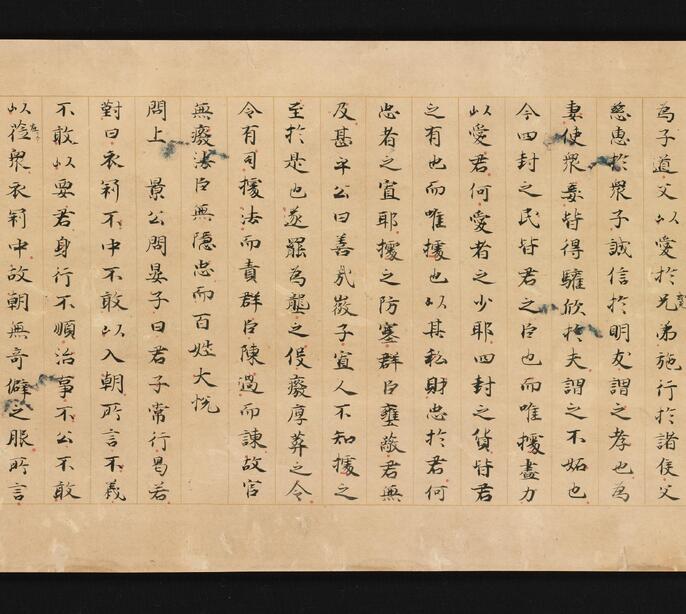 為子道父以愛於兄弟施行於諸侯父
慈惠於衆子誠信於朋友謂之孝也為
妻使衆妾皆得驩欣於夫謂之不妬也
今四封之民皆君之臣也而唯據盡力
以愛君何愛者之少耶四封之貨皆君
之有也而唯據也以其私財忠於君何
忠者之寡耶據之防塞群臣壅蔽君無
乃甚乎公曰善哉微子寡人不知據之
至於是也遂罷為壟之役廢厚葬之令
令有司據法而責群臣陳過而諫故官
無廢法臣無隱忠而百姓大悅
問上 景公問晏子曰君子常行曷若
對曰衣冠不中不敢以入朝所言不義
不敢以要君身行不順治事不公不敢
以莅衆衣冠中故朝無奇僻之服所言